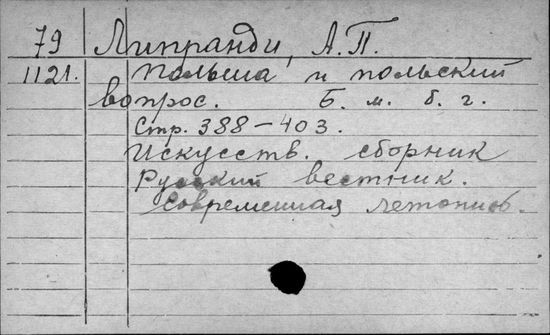 79 Липранди, А.П.
1121. Польша и польский
вопрос. Б. м. б. г.
Стр. 388-403.
Искусств. сборник
Русский вестник.
Современная летопись.